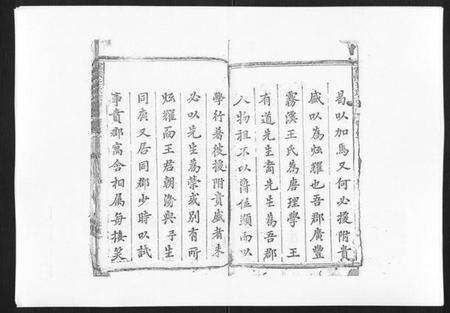 易以加馬又何必援附貴
盛以為炫耀也吾郡廣豐
霧溪王氏為唐理學 王
有道先生裔先生為吾郡
人物祖不以爵位顯而以
學行著彼援附貴盛者未
必以先生為榮或別有所
炫耀而王君朝 與予生
同庚又居同郡少時以試
事賣郡寓舍相屬每接笑